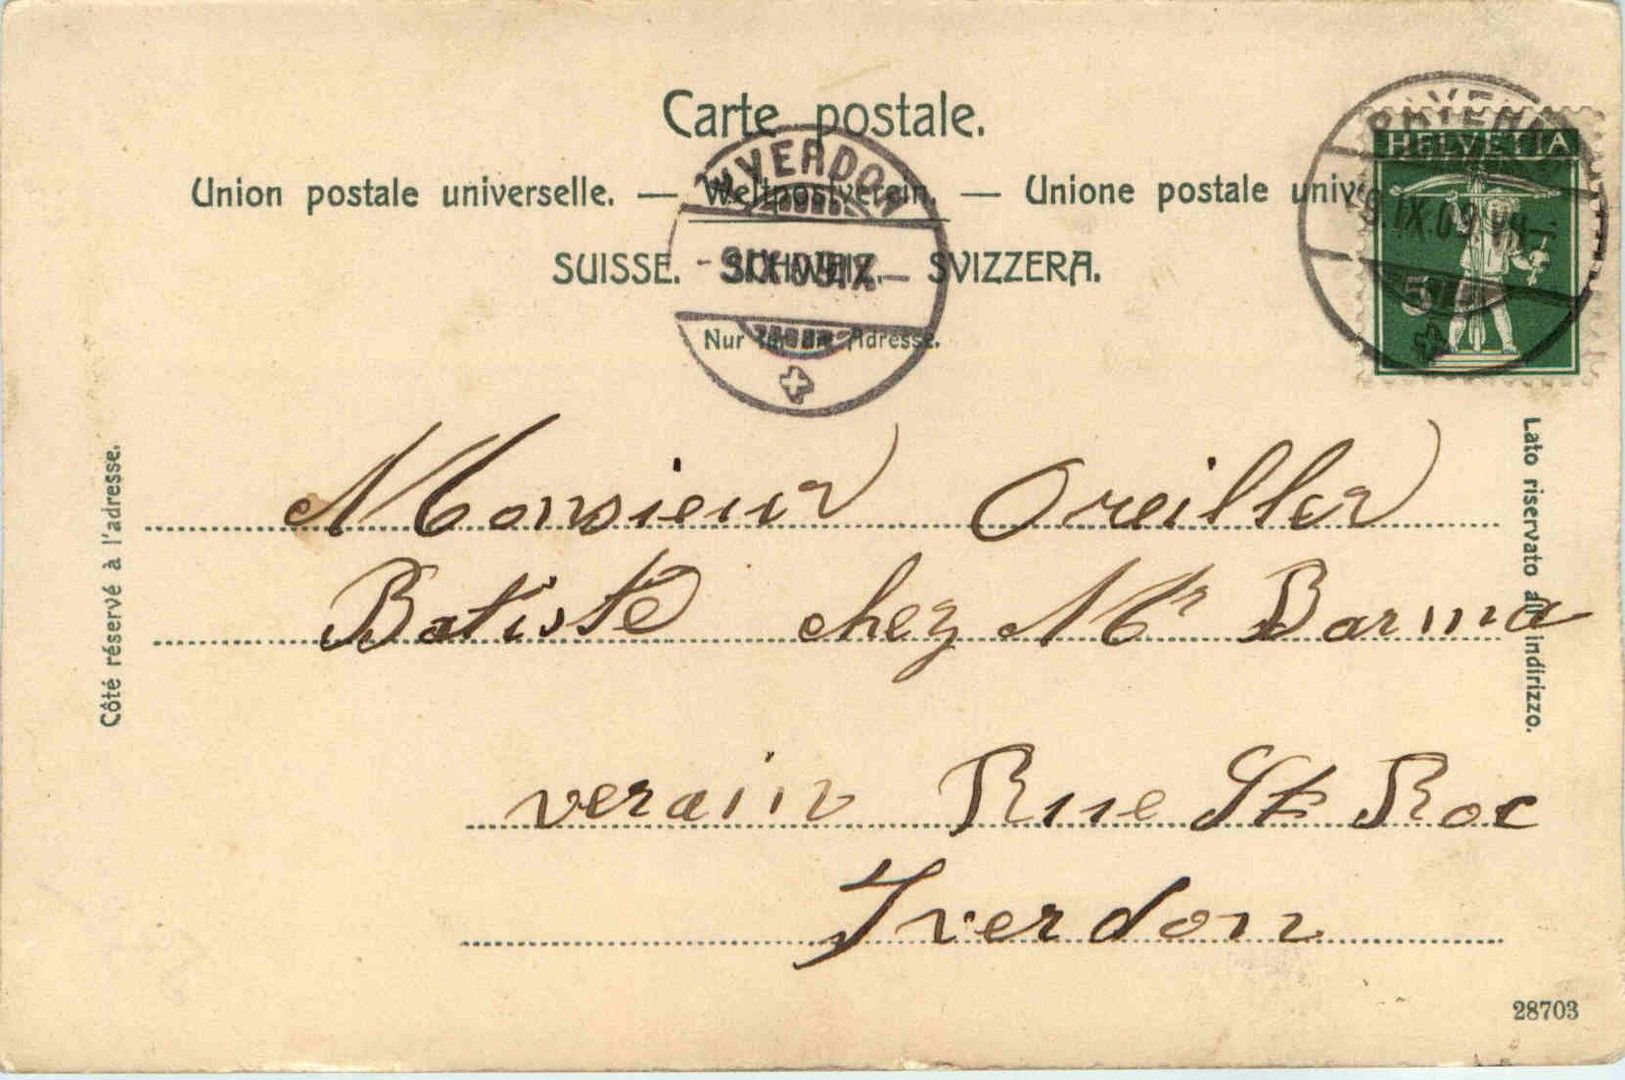 Carte postale.
Union postale universelle. — Weltpostverein. — Unione postale
SUISSE. SCHWEIZ. SVIZZERA.
Nur für die Adresse.
YVERDON
9.IX.09.IX.–
PAYERNE
9.IX.09.VII–
HELVETIA
5
Côté réservé à l'adresse.
Lato riservato all'indirizzo.
Monsieur Oreiller
Batiste chez Mr Barma
verain Rue St Roc
Yverdon
28703